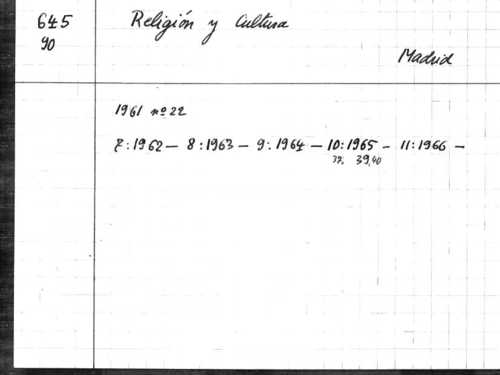 645
90
Religión y Cultura
Madrid
1961 nº 22
7:1962 — 8:1963 — 9:1964 — 10:1965 — 11:1966 —
39,40